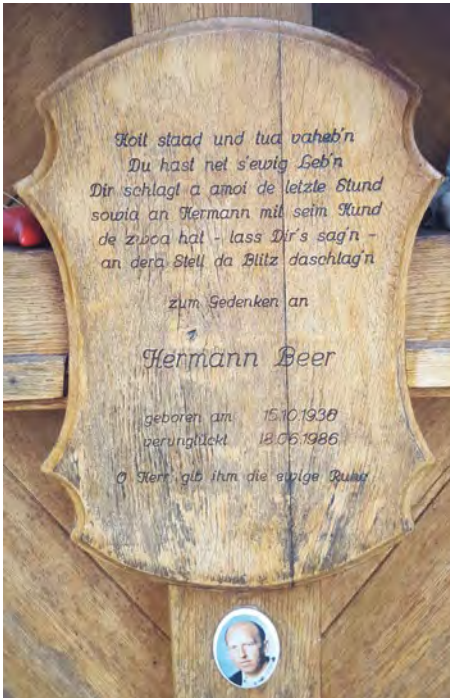 Hoit staad und tua vaheb'n
Du hast net s'ewig Leb'n
Dir schlagt a amoi de letzte Stund
sowia an Hermann mit seim Hund
de zwoa hat - lass Dir's sag'n -
an dera Stell da Blitz daschlag'n
zum Gedenken an
Hermann Beer
geboren am 15.10.1938
verunglückt 18.06.1986
O Herr gib ihm die ewige Ruhe